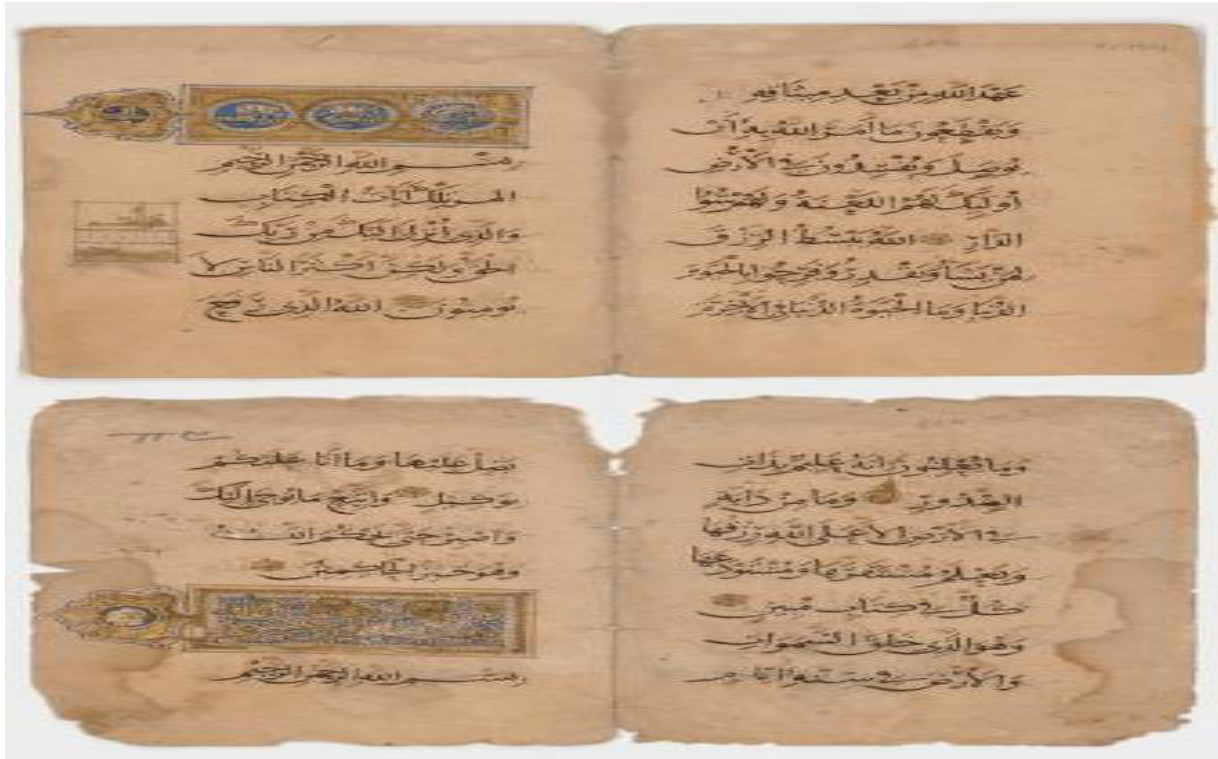 عهد الله من بعد ميثاقه
ويقطعون ما أمر الله به أن
يوصل ويفسدون في الأرض
أولئك لهم اللعنة ولهم سوء
الدار الله يبسط الرزق
لمن يشاء ويقدر وفرحوا بالحيوة
الدنيا وما الحيوة الدنيا في الآخرة
بسم الله الرحمن الرحيم
المر تلك آيات الكتاب
والذي أنزل إليك من ربك
الحق ولكن أكثر الناس لا
يؤمنون الله الذي رفع
وما يعلنون إنه عليم بذات
الصدور وما من دابة
في الأرض إلا على الله رزقها
ويعلم مستقرها ومستودعها
كل في كتاب مبين
وهو الذي خلق السموات
والأرض في ستة أيام
يضل عليها وما أنا عليكم
بوكيل واتبع ما يوحى إليك
واصبر حتى يحكم الله
وهو خير الحاكمين
بسم الله الرحمن الرحيم